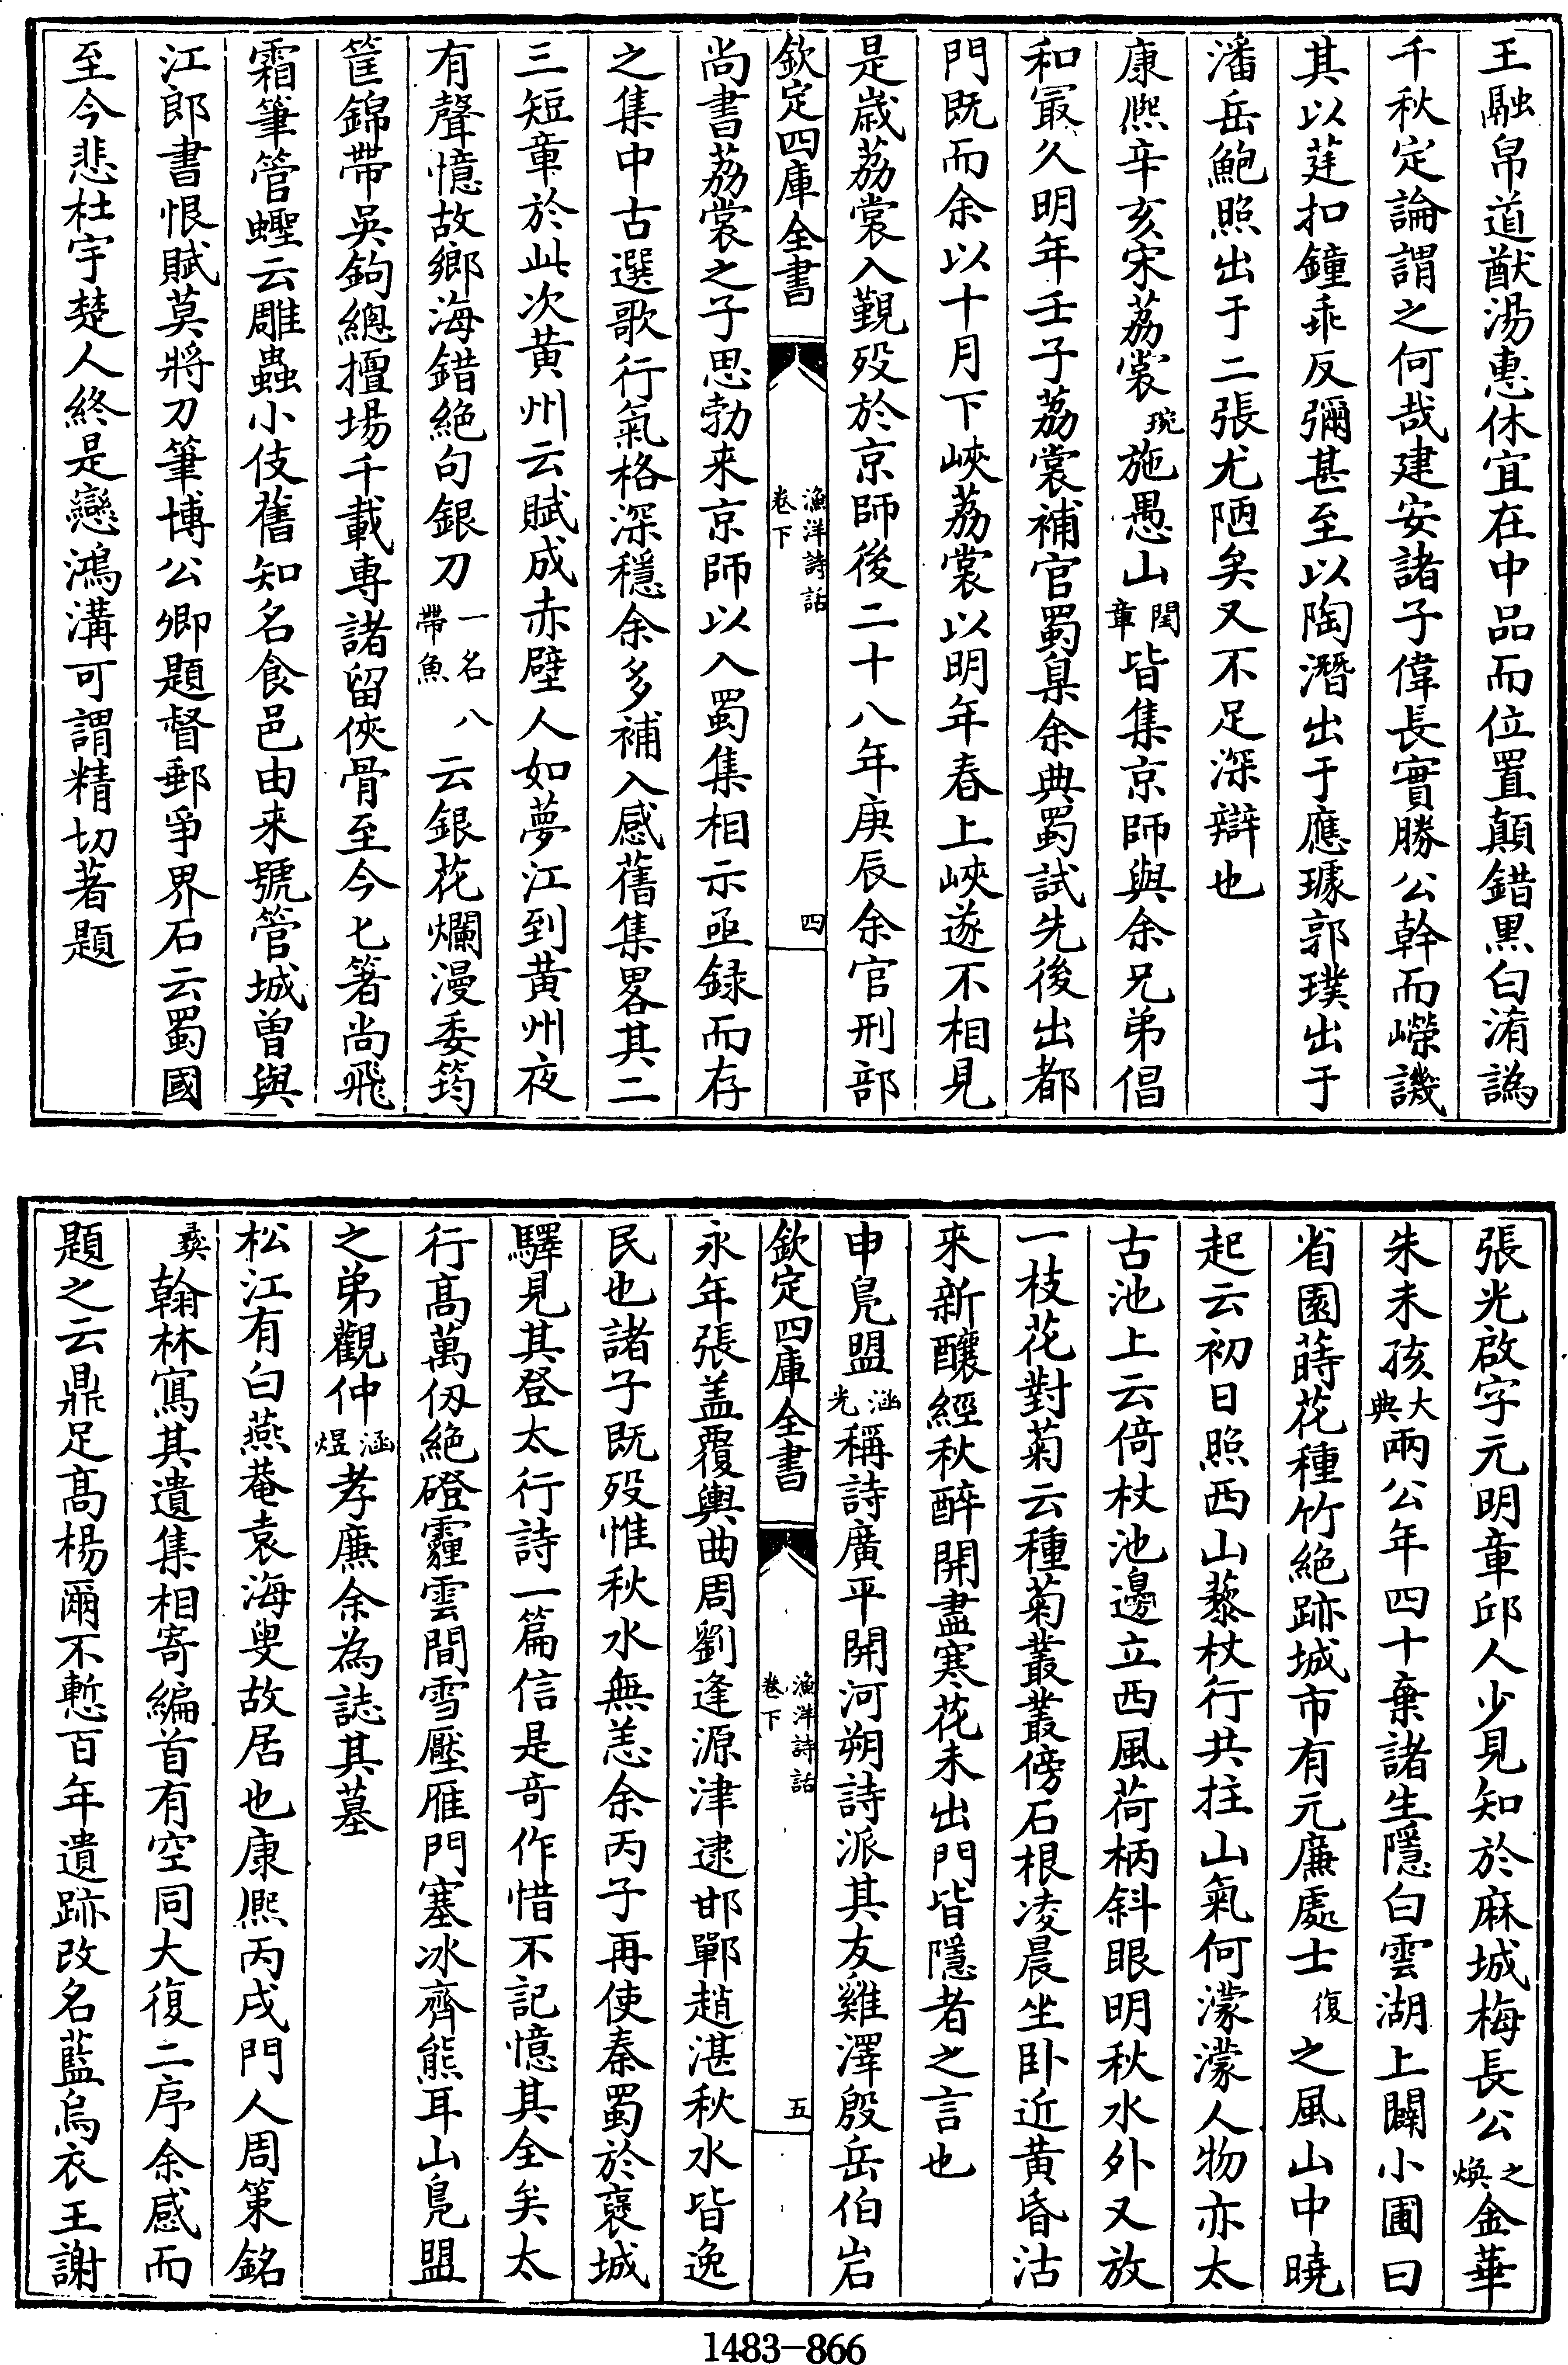 王融帛道猷湯惠休宜在中品而位置顛錯黑白淆譌
千秋定論謂之何哉建安諸子偉長實勝公幹而嶸譏
其以莛扣鐘乖反彌甚至以陶潛出于應璩郭璞出于
潘岳鮑照出于二張尤陋矣又不足深辯也
康熙辛亥宋荔裳琬施愚山閏章皆集京師與余兄弟倡
和冣久明年壬子荔裳補官蜀臬余典蜀試先後出都
門既而余以十月下峽荔裳以明年春上峽遂不相見
是歲荔裳入覲歿於京師後二十八年庚辰余官刑部
欽定四庫全書
漁洋詩話
卷下
四
尚書荔裳之子思勃来京師以入蜀集相示亟録而存
之集中古選歌行氣格深穩余多補入感舊集畧其二
三短章於此次黃州云賦成赤壁人如夢江到黃州夜
有聲憶故鄉海錯絶句銀刀一名帶魚八云銀花爛漫委筠
筐錦帶吳鉤總擅場千載專諸留俠骨至今匕箸尚飛
霜筆管蟶云雕蟲小伎舊知名食邑由来號管城曽與
江郎書恨賦莫將刀筆博公卿題督郵爭界石云蜀國
至今悲杜宇楚人終是戀鴻溝可謂精切著題
張光啟字元明章邱人少見知於麻城梅長公之煥金華
朱未孩大典兩公年四十棄諸生隱白雲湖上闢小圃曰
省園蒔花種竹絶跡城市有元廉處士復之風山中曉
起云初日照西山藜杖行共拄山氣何濛濛人物亦太
古池上云倚杖池邊立西風荷柄斜眼明秋水外又放
一枝花對菊云種菊叢叢傍石根凌晨坐卧近黃昏沽
来新釀經秋醉開盡寒花未出門皆隱者之言也
申鳧盟涵光稱詩廣平開河朔詩派其友雞澤殷岳伯岩
欽定四庫全書
漁洋詩話
卷下
五
永年張盖覆輿曲周劉逢源津逮邯鄲趙湛秋水皆逸
民也諸子既歿惟秋水無恙余丙子再使秦蜀於褒城
驛見其登太行詩一篇信是奇作惜不記憶其全矣太
行髙萬仭絶磴霾雲間雪壓雁門塞冰齊熊耳山鳧盟
之弟觀仲涵煜孝廉余為誌其墓
松江有白燕菴袁海叟故居也康熙丙戌門人周策銘
彝翰林寫其遺集相寄編首有空同大復二序余感而
題之云鼎足髙楊爾不慙百年遺跡改名藍烏衣王謝
1483-866